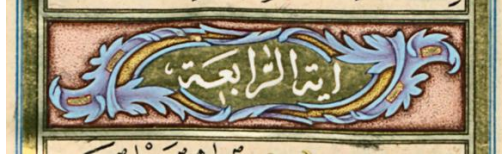 اية الرابعة